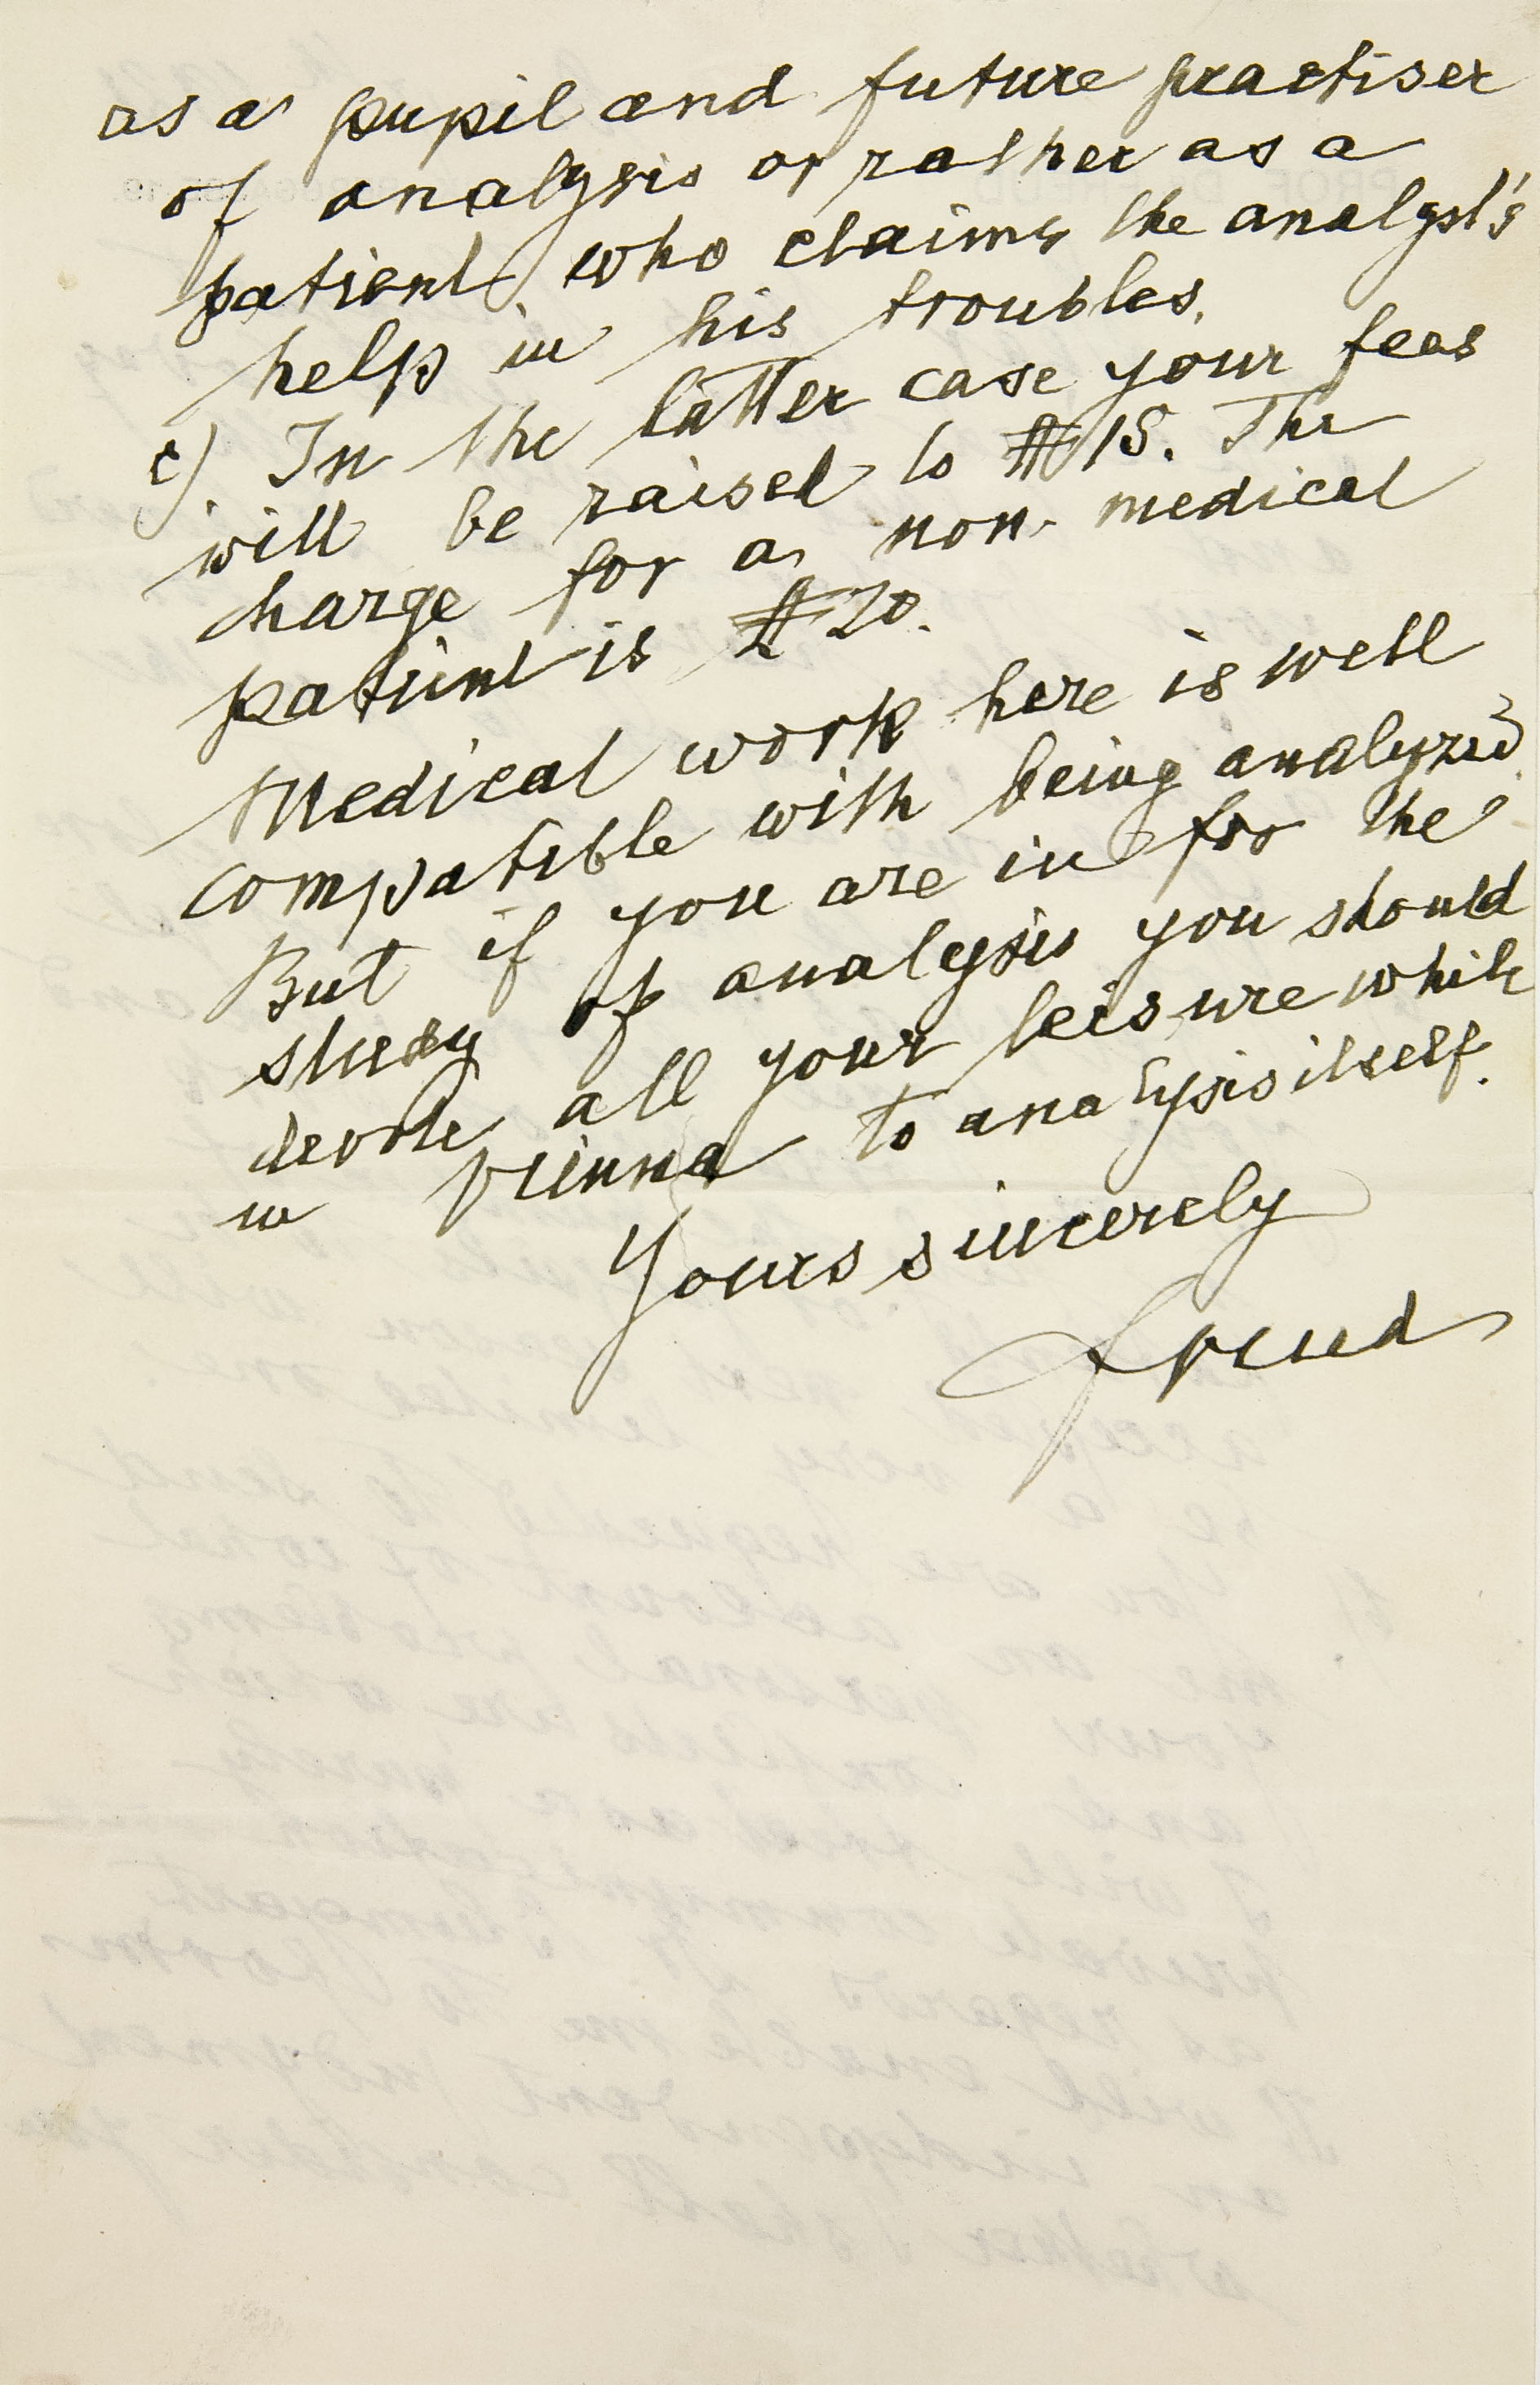 as a pupil and future practiser
of analysis or rather as a
patient who claims the analyst's
help in his troubles.
c) In the latter case your fees
will be raised to $15. The
charge for a non-medical
patient is $20.
Medical work here is well
compatible with being analyzed.
But if you are in for the
study of analysis you should
devote all your leisure while
in Vienna to analysis itself.
Yours sincerely
Freud